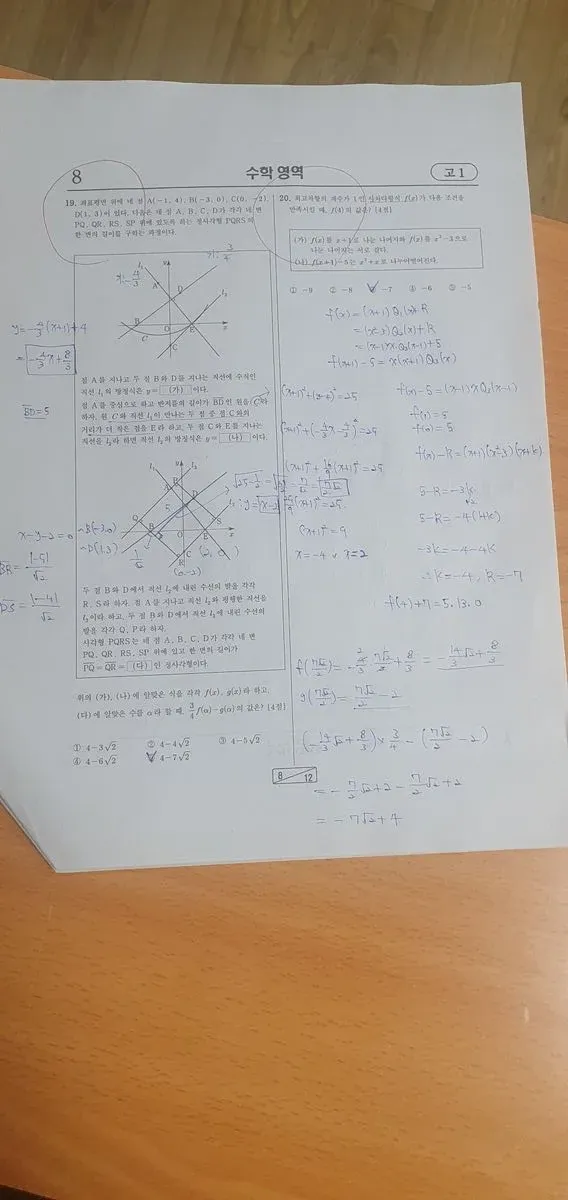 8
수학 영역
고 1
19. 좌표평면 위에 네 점 A(−1, 4), B(−3, 0), C(0, −2),
D(1, 3)이 있다. 다음은 네 점 A, B, C, D가 각각 네 변
PQ, QR, RS, SP 위에 있도록 하는 정사각형 PQRS의
한 변의 길이를 구하는 과정이다.
점 A를 지나고 두 점 B와 D를 지나는 직선에 수직인
직선 l₁의 방정식은 y= (가) 이다.
점 A를 중심으로 하고 반지름의 길이가 BD인 원을 C라
하자. 원 C와 직선 l₁이 만나는 두 점 중 점 C와의
거리가 더 작은 점을 E라 하고, 두 점 C와 E를 지나는
직선을 l₂라 하면 직선 l₂의 방정식은 y= (나) 이다.
y=-4/3(x+1)+4
= -4/3x+8/3
BD=5
x-y-2=0
BR= |-5|/√2
DS= |-4|/√2
두 점 B와 D에서 직선 l₂에 내린 수선의 발을 각각
R, S라 하자. 점 A를 지나고 직선 l₂와 평행한 직선을
l₃이라 하고, 두 점 B와 D에서 직선 l₃에 내린 수선의
발을 각각 Q, P라 하자.
사각형 PQRS는 네 점 A, B, C, D가 각각 네 변
PQ, QR, RS, SP 위에 있고 한 변의 길이가
PQ=QR= (다) 인 정사각형이다.
위의 (가), (나)에 알맞은 식을 각각 f(x), g(x)라 하고,
(다)에 알맞은 수를 α라 할 때, 3/4f(α)−g(α)의 값은? [4점]
① 4−3√2
② 4−4√2
③ 4−5√2
④ 4−6√2
4−7√2
20. 최고차항의 계수가 1인 삼차다항식 f(x)가 다음 조건을
만족시킬 때, f(4)의 값은? [4점]
(가) f(x)를 x+1로 나눈 나머지와 f(x)를 x²−3으로
나눈 나머지는 서로 같다.
(나) f(x+1)−5는 x²+x로 나누어떨어진다.
① −9
② −8
−7
④ −6
⑤ −5
f(x)= (x+1)Q₁(x)+R
= (x²-3)Q₂(x)+R
= (x-1)x Q₃(x-1)+5
f(x+1)-5 = x(x+1)Q₃(x)
f(x)-5 = (x-1)x Q₃(x-1)
f(1)=5
f(0)=5
f(x)-R=(x+1)(x²-3)
5-R=-3k
5-R=-4(1+k)
-3k=-4-4k
∴k=-4, R=-7
f(4)+7=5.13.0
(x+1)²+(y-4)²=25
(x+1)²+(-4/3x-4/3)²=25
(x+1)²+16/9(x+1)²=25
25/9(x+1)²=25
(x+1)²=9
x=-4 x=2
f(7√2/2)= -4/3·7√2/2+8/3 = -14/3√2+8/3
g(7√2/2)= 7√2/2-2
(-14/3√2+8/3)×3/4-(7√2/2-2)
= -7/2√2+2-7/2√2+2
= -7√2+4
8
12